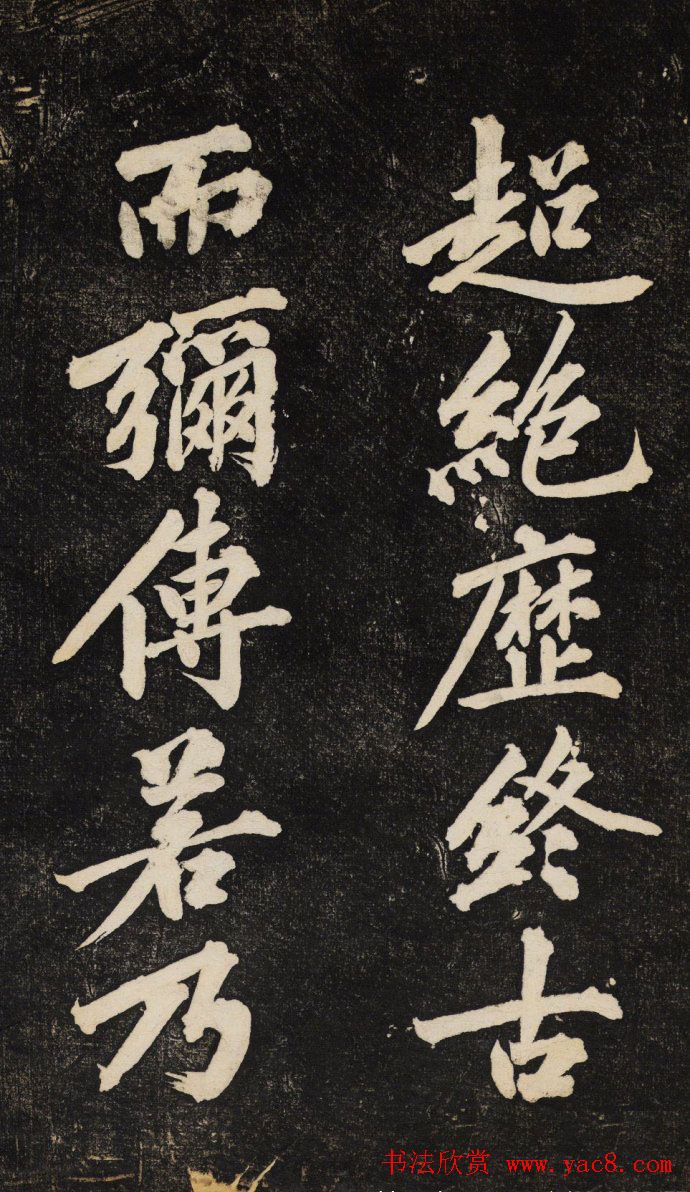 超絶歷終古
而彌傳若乃
书法欣赏 www.yac8.com